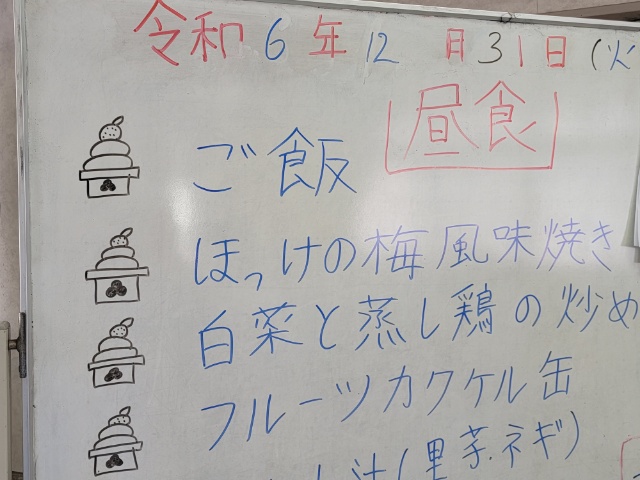 令和6年12月31日(火
昼食
ご飯
ほっけの梅風味焼き
白菜と蒸し鶏の炒め
フルーツカクケル缶
汁(里芋.ネギ)